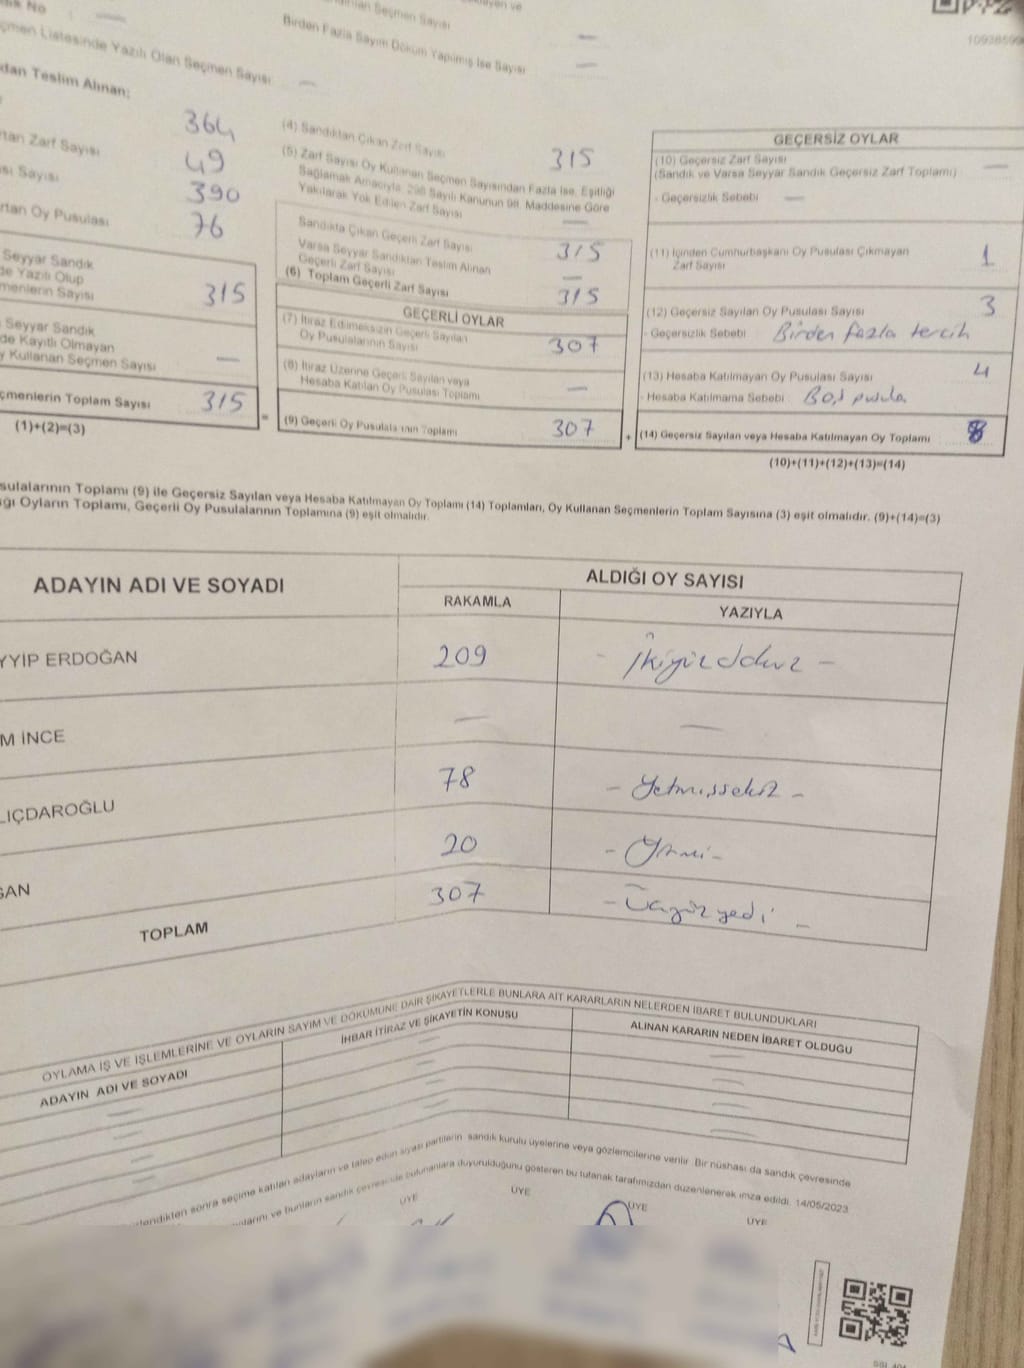 No —
Birden Fazla Sayım Döküm Yapılmış İse Sayısı —
Listesinde Yazılı Olan Seçmen Sayısı —
Teslim Alınan;
364
Zarf Sayısı 49
Sayısı 390
Oy Pusulası 76
Seyyar Sandık
Yazılı Olup
Sayısı 315
Seyyar Sandık
Kayıtlı Olmayan
Kullanan Seçmen Sayısı —
Toplam Sayısı 315
(1)+(2)=(3)
=
(4) Sandıktan Çıkan Zarf Sayısı 315
(5) Zarf Sayısı Oy Kullanan Seçmen Sayısından Fazla İse, Eşitliği
Sağlamak Amacıyla, 298 Sayılı Kanunun 98. Maddesine Göre
Yakılarak Yok Edilen Zarf Sayısı —
Sandıkta Çıkan Geçerli Zarf Sayısı 315
Varsa Seyyar Sandıktan Teslim Alınan
Geçerli Zarf Sayısı —
(6) Toplam Geçerli Zarf Sayısı 315
GEÇERLİ OYLAR
(7) İtiraz Edilmeksizin Geçerli Sayılan
Oy Pusulalarının Sayısı 307
(8) İtiraz Üzerine Geçerli Sayılan veya
Hesaba Katılan Oy Pusulası Toplamı —
(9) Geçerli Oy Pusulalarının Toplamı 307
+
GEÇERSİZ OYLAR
(10) Geçersiz Zarf Sayısı —
(Sandık ve Varsa Seyyar Sandık Geçersiz Zarf Toplamı)
- Geçersizlik Sebebi —
(11) İçinden Cumhurbaşkanı Oy Pusulası Çıkmayan
Zarf Sayısı 1
(12) Geçersiz Sayılan Oy Pusulası Sayısı 3
- Geçersizlik Sebebi Birden fazla tercih
(13) Hesaba Katılmayan Oy Pusulası Sayısı 4
- Hesaba Katılmama Sebebi Boş pusula
(14) Geçersiz Sayılan veya Hesaba Katılmayan Oy Toplamı 8
(10)+(11)+(12)+(13)=(14)
Toplamı (9) ile Geçersiz Sayılan veya Hesaba Katılmayan Oy Toplamı (14) Toplamları, Oy Kullanan Seçmenlerin Toplam Sayısına (3) eşit olmalıdır. (9)+(14)=(3)
Oyların Toplamı, Geçerli Oy Pusulalarının Toplamına (9) eşit olmalıdır.
ADAYIN ADI VE SOYADI
ALDIĞI OY SAYISI
RAKAMLA YAZIYLA
YYİP ERDOĞAN 209 - İkiyüzdokuz -
M İNCE — —
LIÇDAROĞLU 78 - Yetmişsekiz -
ĞAN 20 - Yirmi -
TOPLAM 307 - Üçyüzyedi -
OYLAMA İŞ VE İŞLEMLERİNE VE OYLARIN SAYIM VE DÖKÜMÜNE DAİR ŞİKAYETLERLE BUNLARA AİT KARARLARIN NELERDEN İBARET BULUNDUKLARI
ADAYIN ADI VE SOYADI İHBAR İTİRAZ VE ŞİKAYETİN KONUSU ALINAN KARARIN NEDEN İBARET OLDUĞU
sonra seçime katılan adayların ve talep eden siyasi partilerin sandık kurulu üyelerine veya gözlemcilerine verilir. Bir nüshası da sandık çevresinde
ve bunların sandık çevresinde bulunanlara duyurulduğunu gösteren bu tutanak tarafımızdan düzenlenerek imza edildi. 14/05/2023
ÜYE ÜYE ÜYE ÜYE